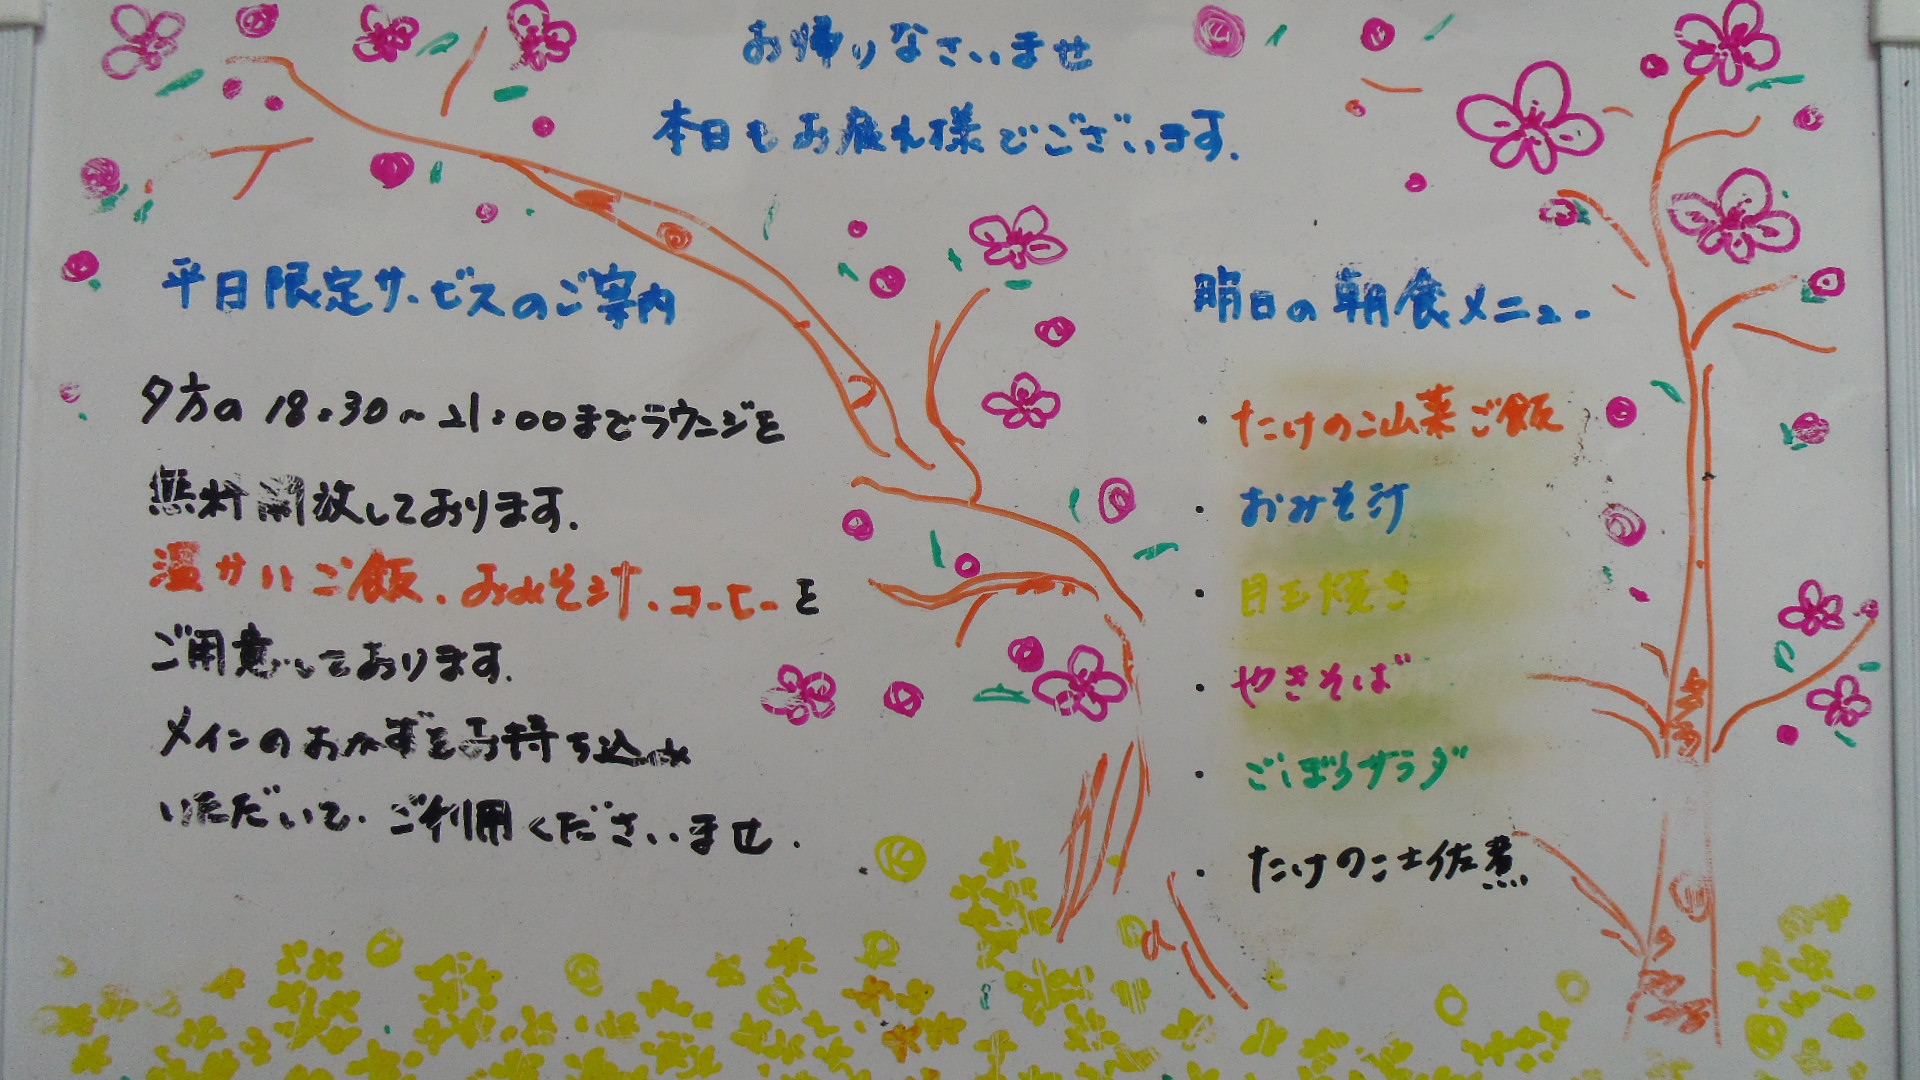 お帰りなさいませ
本日もお疲れ様でございます.
平日限定サービスのご案内
夕方の 18:30~21:00までラウンジを
無料開放しております.
温かいご飯、おみそ汁、コーヒーを
ご用意しております.
メインのおかずをお持ち込み
いただいて、ご利用くださいませ.
明日の朝食メニュー
・たけのこ山菜ご飯
・おみそ汁
・目玉焼き
・やきそば
・ごぼうサラダ
・たけのこ土佐煮